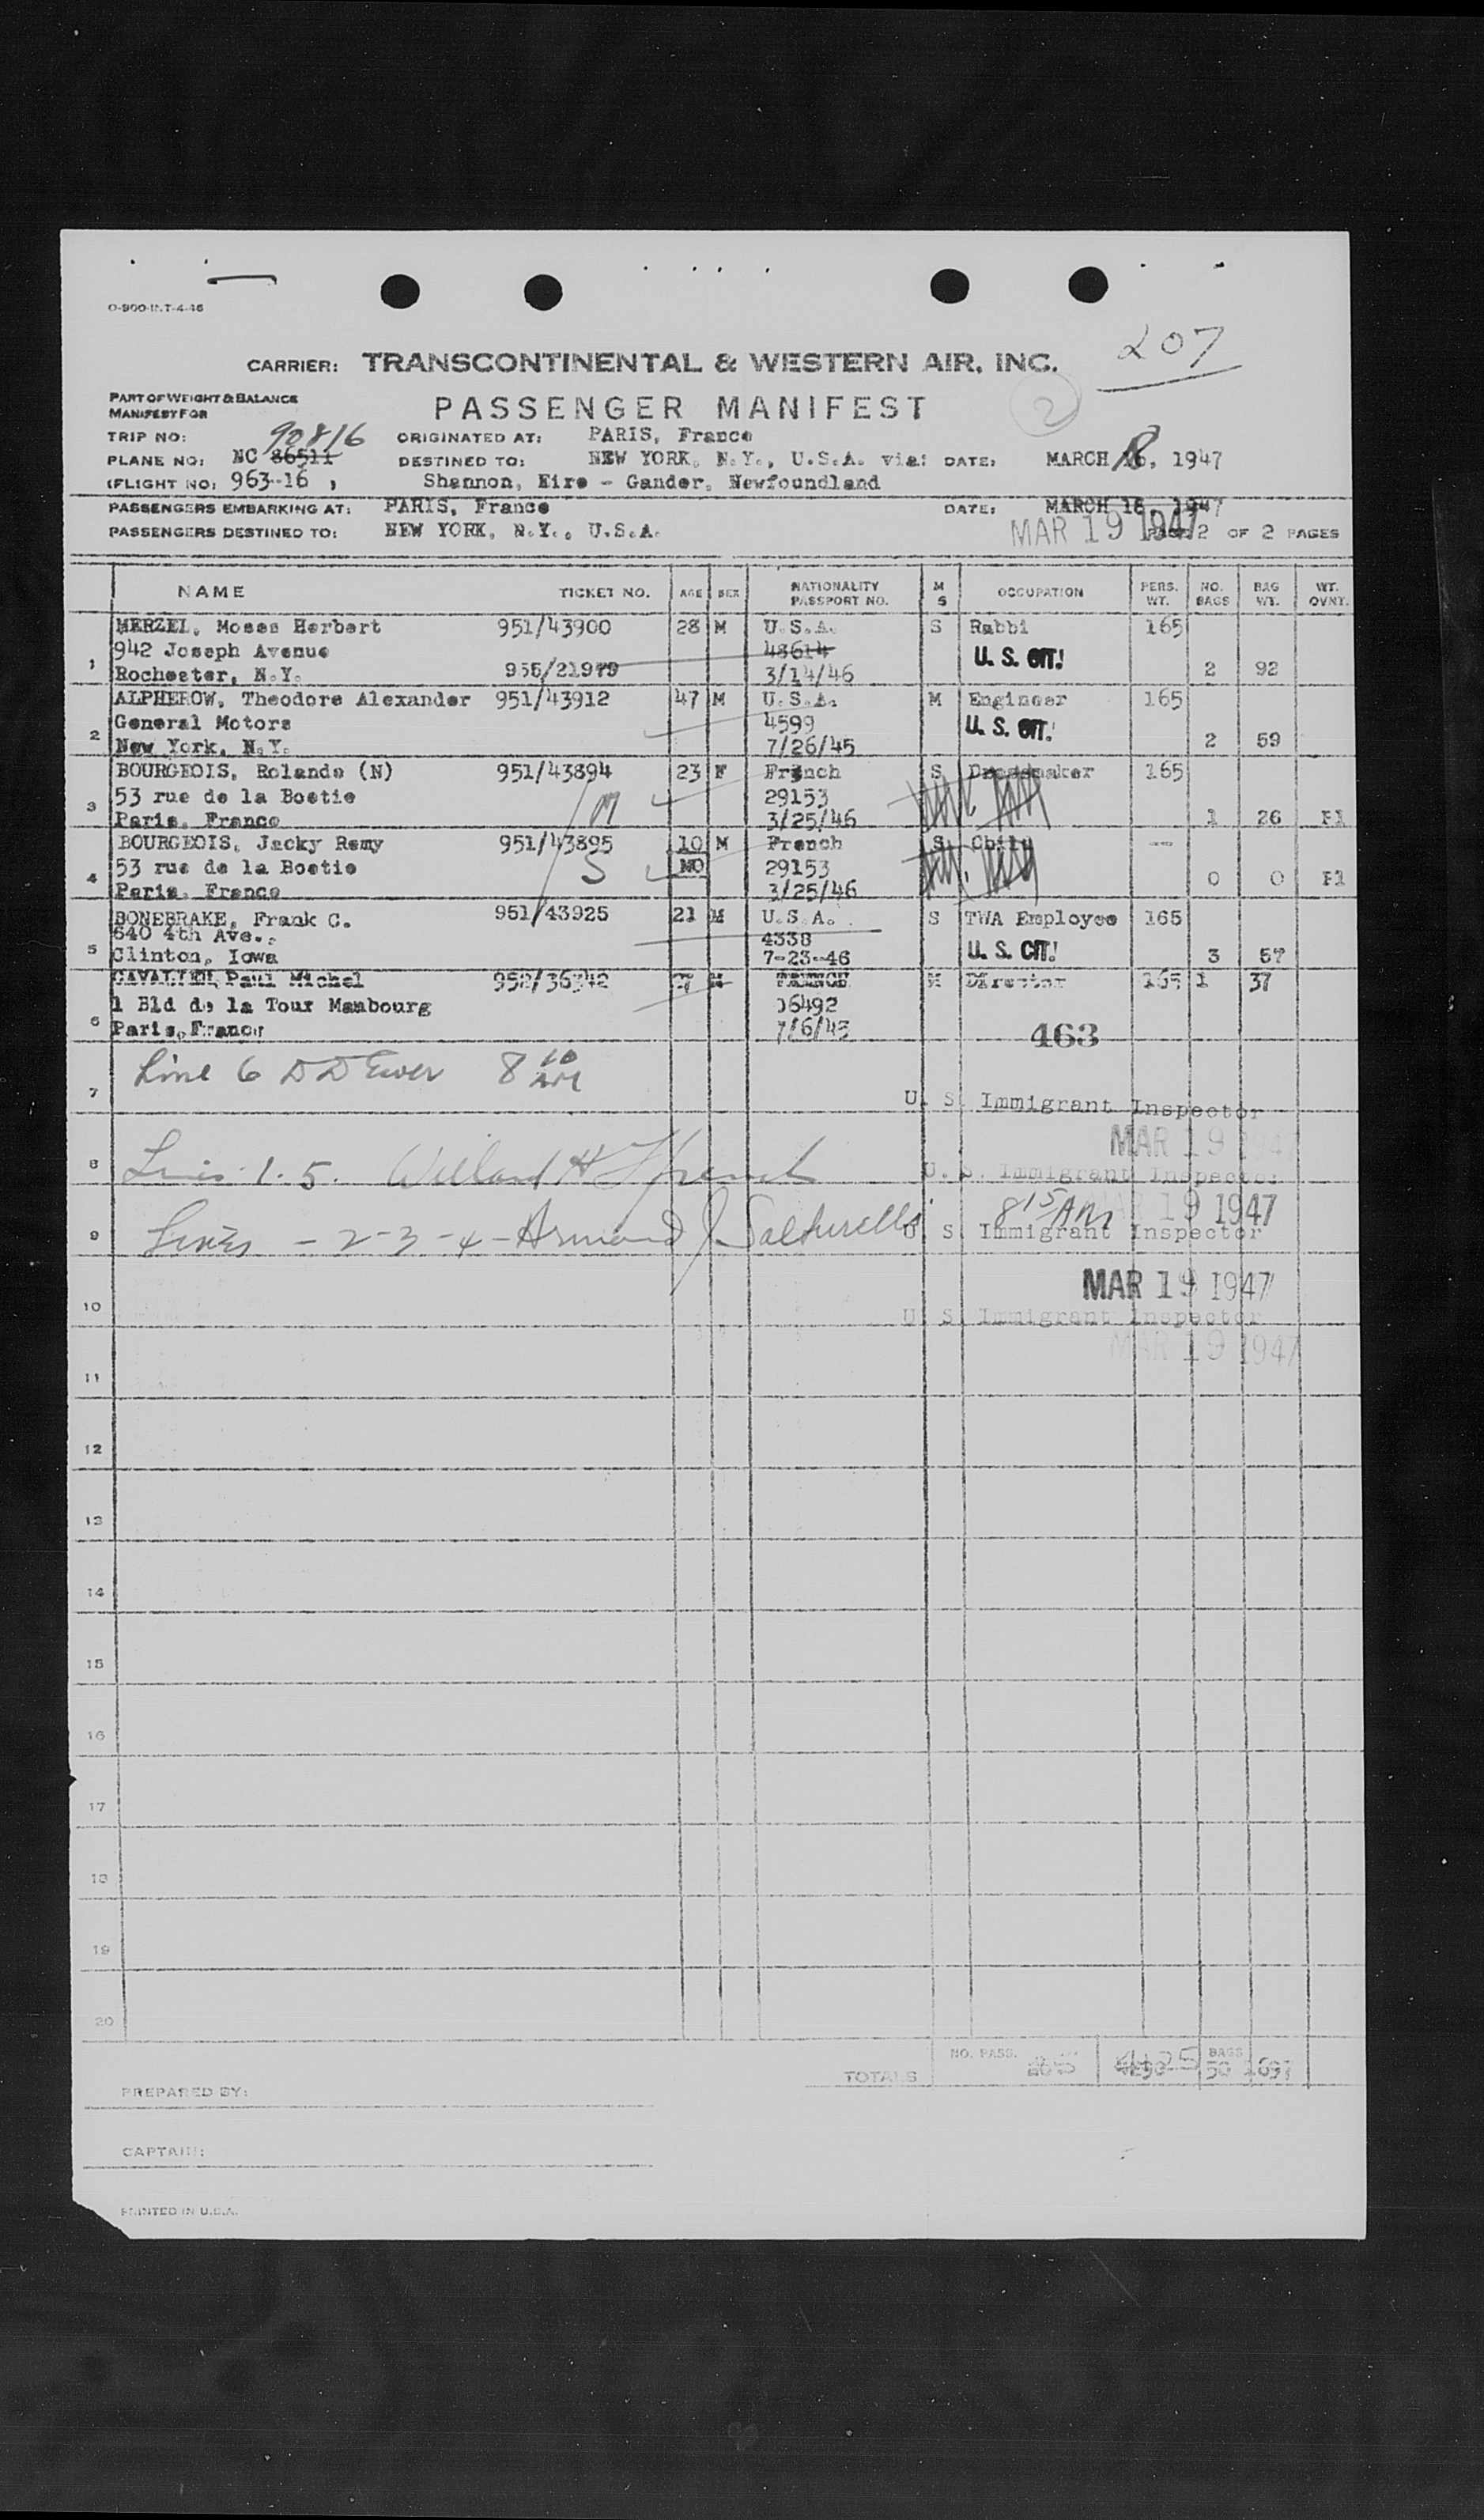 O-900-INT-4-46
207
CARRIER: TRANSCONTINENTAL & WESTERN AIR, INC.
PART OF WEIGHT & BALANCE
MANIFEST FOR
PASSENGER MANIFEST
2
TRIP NO: 90816 ORIGINATED AT: PARIS, France
PLANE NO: NC 86511 DESTINED TO: NEW YORK, N.Y., U.S.A. via: DATE: MARCH 18, 1947
(FLIGHT NO: 963-16 , Shannon, Eire - Gander, Newfoundland
PASSENGERS EMBARKING AT: PARIS, France DATE: MARCH 18, 1947
PASSENGERS DESTINED TO: NEW YORK, N.Y., U.S.A. MAR 19 1947 2 OF 2 PAGES
NAME TICKET NO. AGE SEX NATIONALITY PASSPORT NO. M S OCCUPATION PERS. WT. NO. BAGS BAG WT. WT. OVNT.
MERZEL, Moses Herbert 951/43900 28 M U.S.A. S Rabbi 165
942 Joseph Avenue 48614 U. S. CIT!
1 Rochester, N.Y. 3/14/46 2 92
ALPHEROW, Theodore Alexander 951/43912 47 M U.S.A. M Engineer 165
General Motors 4599 U. S. CIT!
2 New York, N.Y. 7/26/45 2 59
BOURGEOIS, Rolande (N) 951/43894 23 F French S Dressmaker 165
53 rue de la Boetie M 29153
3 Paris, France 3/25/46 1 26 P1
BOURGEOIS, Jacky Remy 951/43895 10 M French S Child --
53 rue de la Boetie S MO 29153
4 Paris, France 3/25/46 0 0 P1
BONEBRAKE, Frank C. 951/43925 21 M U.S.A. S TWA Employee 165
640 4th Ave., 4338
5 Clinton, Iowa 7-23-46 U. S. CIT! 3 57
Paul Michel 952/36342 M FRANCE M Director 165 1 37
1 Bld de la Tour Maubourg 06492
6 Paris, France 7/6/45 463
7 Line 6 8 10 AM
U. S. Immigrant Inspector
MAR 19 194
8 Lines 1. 5. Willard H U. S. Immigrant Inspector
8 15 AM MAR 19 1947
9 Lines - 2-3-4- Armand J U. S. Immigrant Inspector
MAR 19 1947
10 U. S. Immigrant Inspector
MAR 19 1947
11
12
13
14
15
16
17
18
19
20
TOTALS NO. PASS. BAGS 50
PREPARED BY:
CAPTAIN:
PRINTED IN U.S.A.